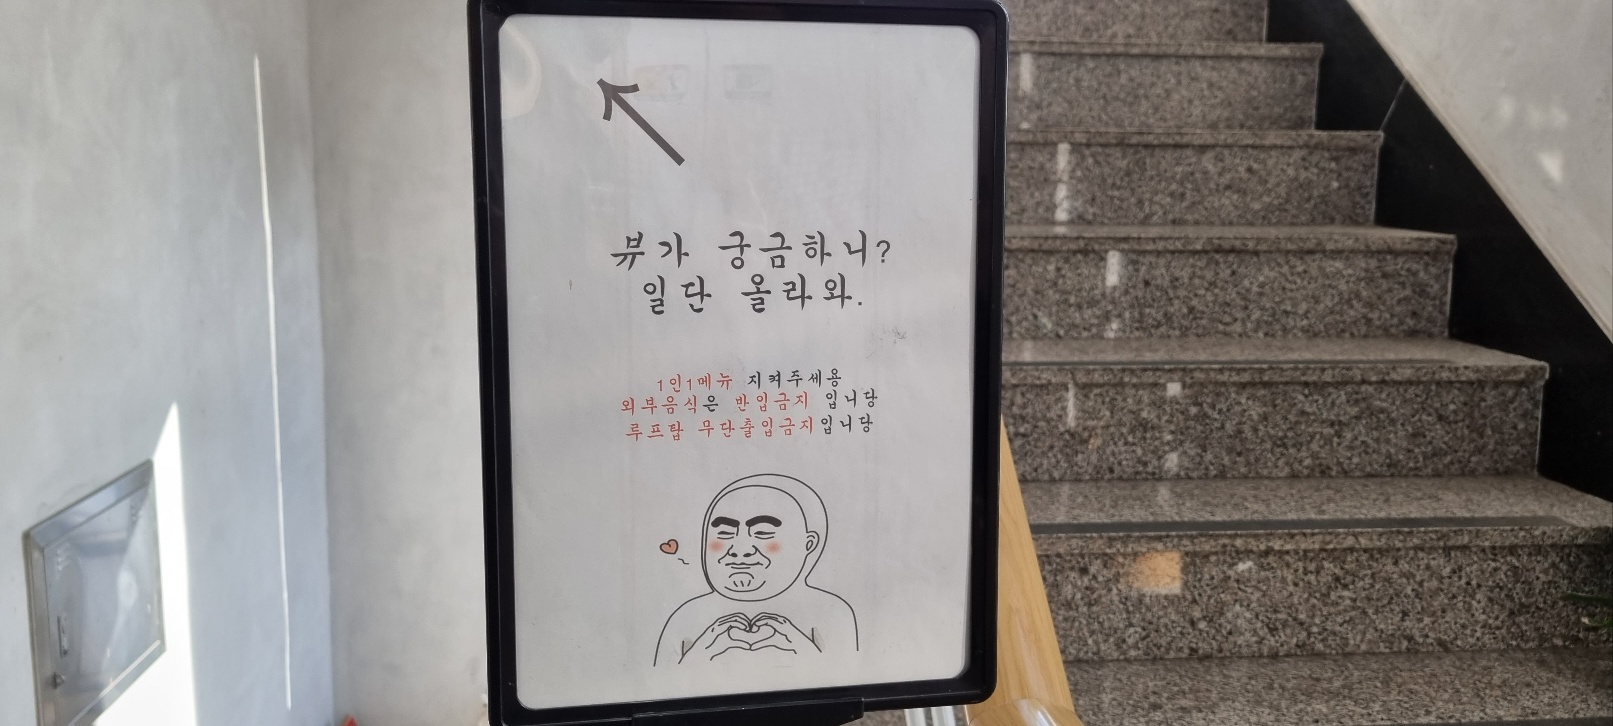 뷰가 궁금하니?
일단 올라와.
1인1메뉴 지켜주세용
외부음식은 반입금지 입니당
루프탑 무단출입금지입니당